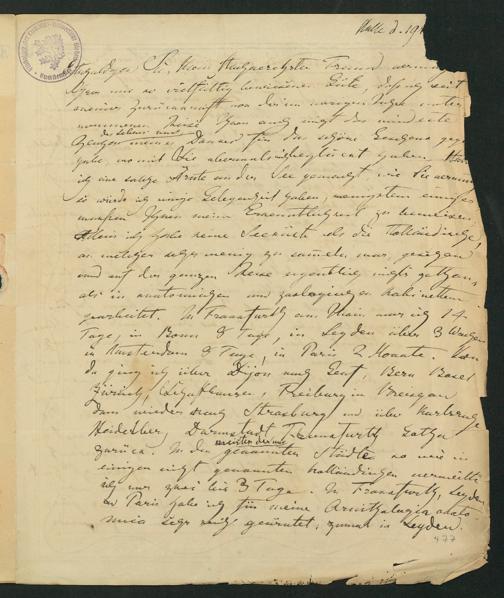 Halle d. 19
Entschuldigen Sie, mein
Ihnen mir so vielfältig bewiesenen Güte, daß ich seit
meiner Zurückkunft von der im vorigen
nommenen Reise Ihnen auch nicht das mindeste
meinen Dank für das schöne
habe, wo mit Sie abermals haben.
ich eine solche an der See gemacht, wie Sie
so würde ich einige Gelegenheit haben, wenigstens einiger
Ihnen meine Erkenntlichkeit zu beweisen.
Allein ich habe keine Seeküste als die Holländische,
an welcher sehr wenig zu sammeln war, gesehen
und auf der ganzen Reise eigentlich nichts gethan,
als in anatomischen und zoologischen Kabinetten
gearbeitet. In Frankfurth am Main war ich 14
Tage, in Bonn 8 Tage, in Leyden über 3 Wochen
in Amsterdam 8 Tage, in Paris 2 Monate. Von
da ging ich über Dijon nach Genf, Bern Basel
Zürich, Schafhausen, Freiburg im Breisgau
dann wieder nach Strasburg und über Karlsruhe
Heidelberg, Darmstadt, Frankfurth, Gotha
zurück. In den meisten der
genannten Städte so wie in
einigen nicht genannten holländischen verweilte
ich nur zwei bis 3 Tage. In Frankfurth, Leyden
u Paris habe ich für meine Ornithologia
sehr viel geärntet, zumal in Leyden.
477